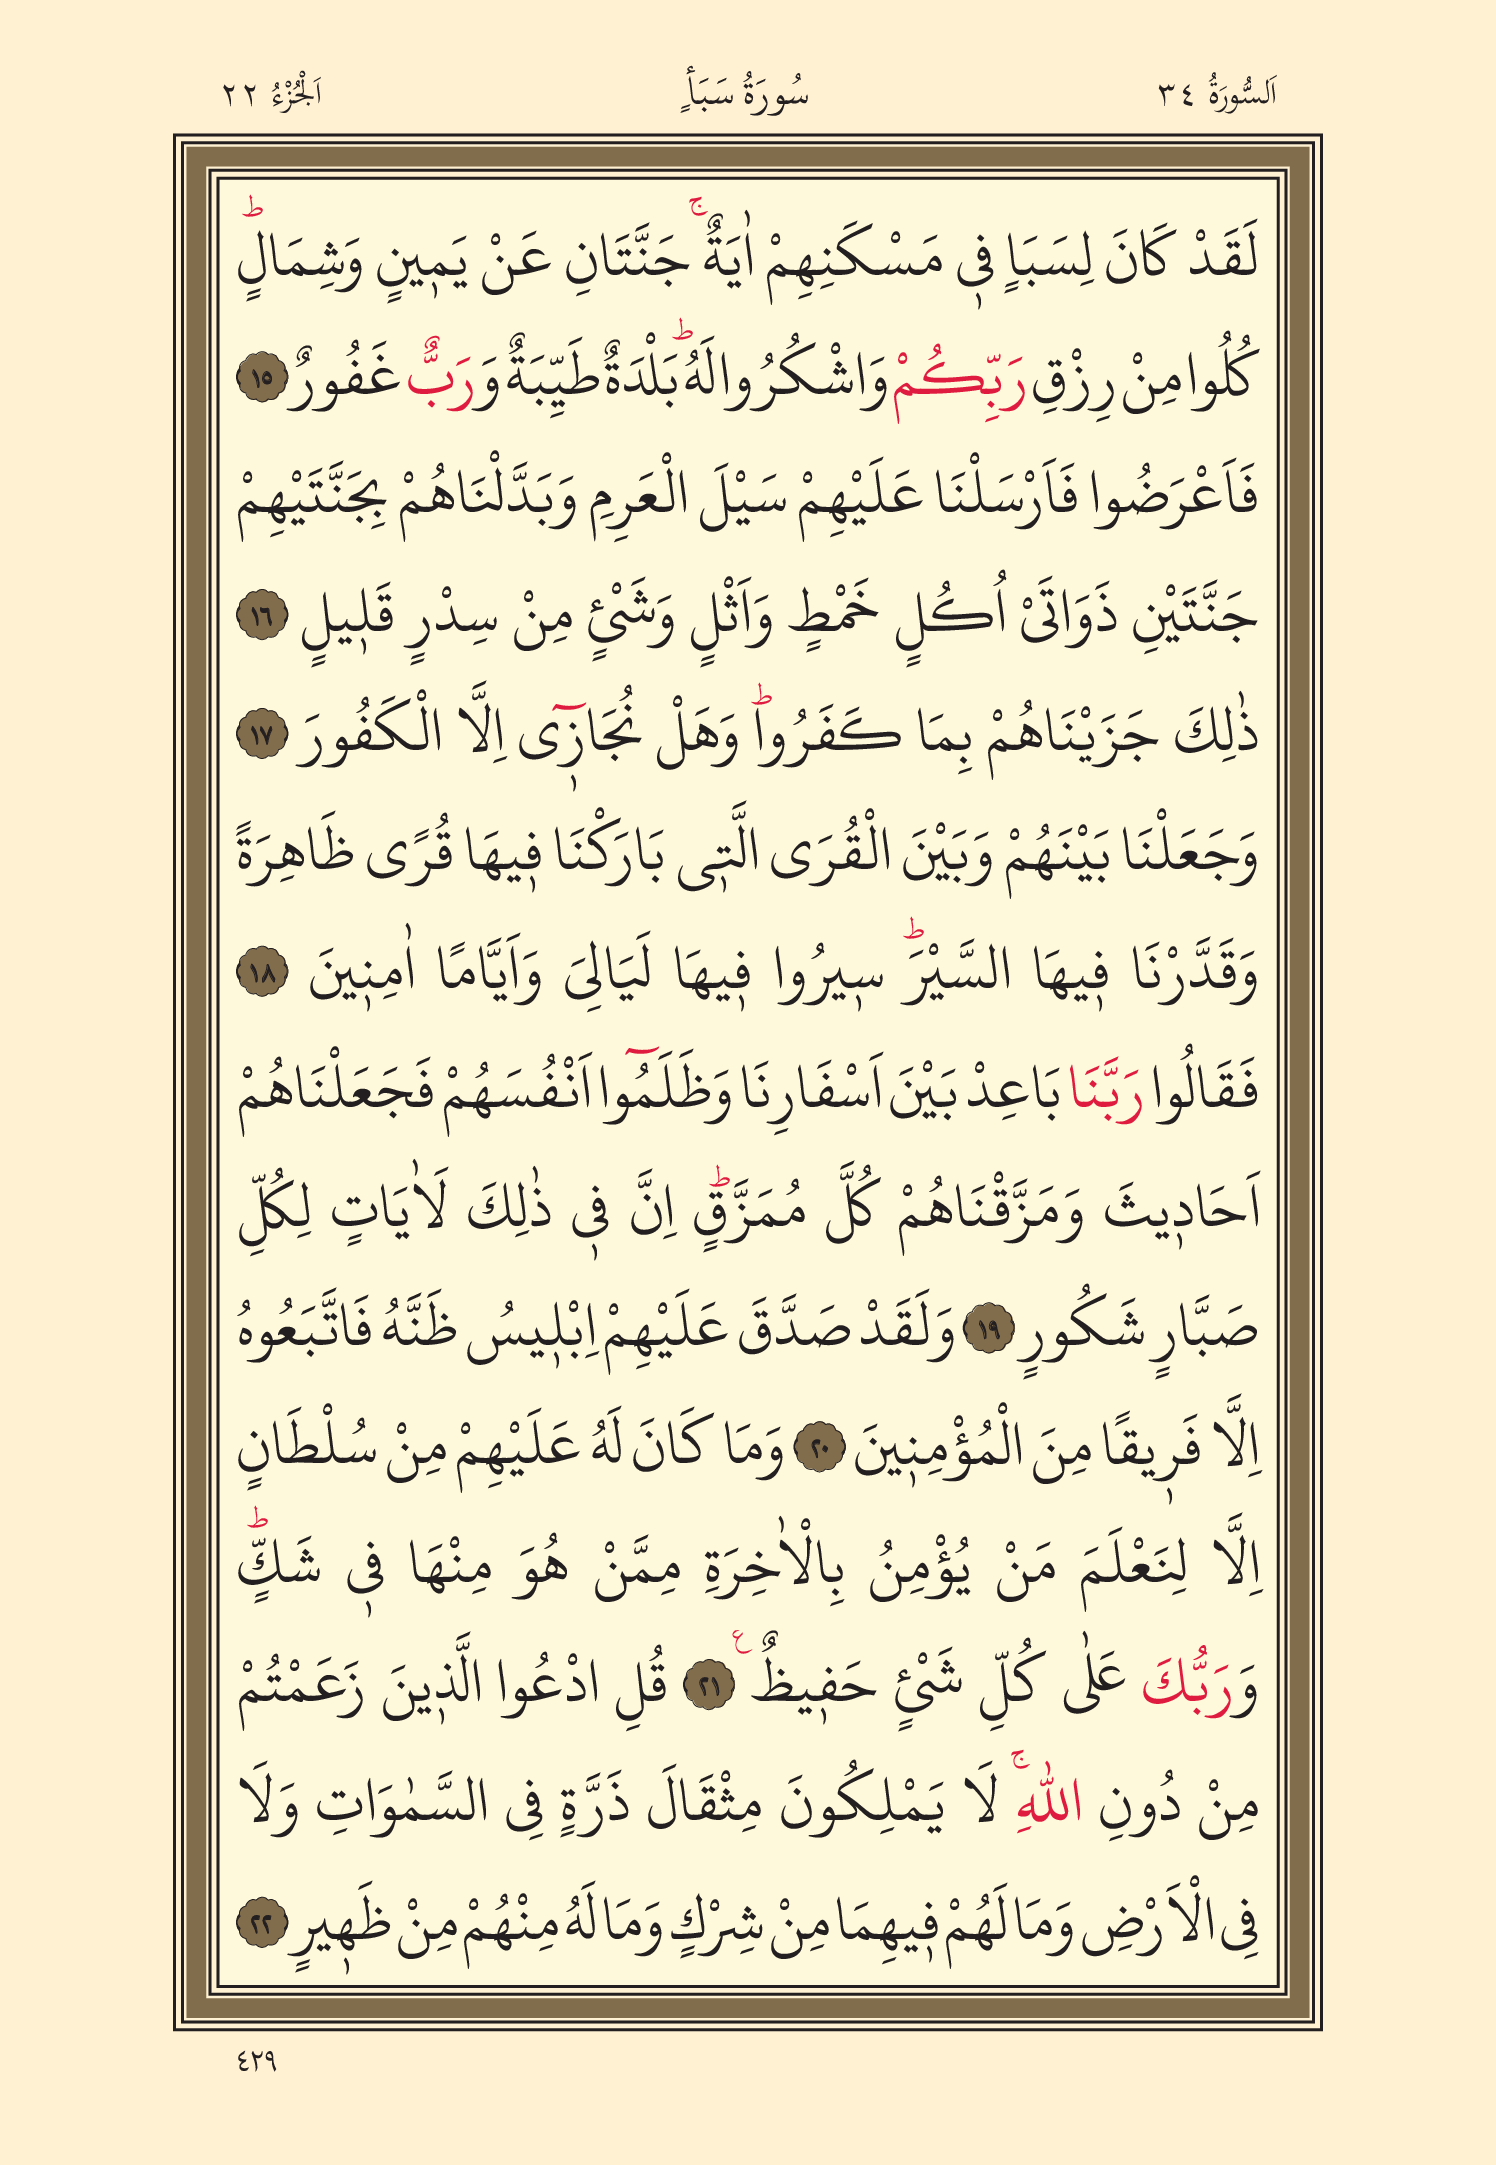 اَلسُّورَةُ ٣٤
سُورَةُ سَبَأٍ
اَلْجُزْءُ ٢٢
لَقَدْ كَانَ لِسَبَاٍ ف۪ي مَسْكَنِهِمْ اٰيَةٌۚ جَنَّتَانِ عَنْ يَم۪ينٍ وَشِمَالٍۜ
كُلُوا مِنْ رِزْقِ رَبِّكُمْ وَاشْكُرُوا لَهُۜ بَلْدَةٌ طَيِّبَةٌ وَرَبٌّ غَفُورٌ ١٥
فَاَعْرَضُوا فَاَرْسَلْنَا عَلَيْهِمْ سَيْلَ الْعَرِمِ وَبَدَّلْنَاهُمْ بِجَنَّتَيْهِمْ
جَنَّتَيْنِ ذَوَاتَىْ اُكُلٍ خَمْطٍ وَاَثْلٍ وَشَيْءٍ مِنْ سِدْرٍ قَل۪يلٍ ١٦
ذٰلِكَ جَزَيْنَاهُمْ بِمَا كَفَرُواۜ وَهَلْ نُجَاز۪ٓي اِلَّا الْكَفُورَ ١٧
وَجَعَلْنَا بَيْنَهُمْ وَبَيْنَ الْقُرَى الَّت۪ي بَارَكْنَا ف۪يهَا قُرًى ظَاهِرَةً
وَقَدَّرْنَا ف۪يهَا السَّيْرَۜ س۪يرُوا ف۪يهَا لَيَالِيَ وَاَيَّامًا اٰمِن۪ينَ ١٨
فَقَالُوا رَبَّنَا بَاعِدْ بَيْنَ اَسْفَارِنَا وَظَلَمُٓوا اَنْفُسَهُمْ فَجَعَلْنَاهُمْ
اَحَاد۪يثَ وَمَزَّقْنَاهُمْ كُلَّ مُمَزَّقٍۜ اِنَّ ف۪ي ذٰلِكَ لَاٰيَاتٍ لِكُلِّ
صَبَّارٍ شَكُورٍ ١٩ وَلَقَدْ صَدَّقَ عَلَيْهِمْ اِبْل۪يسُ ظَنَّهُ فَاتَّبَعُوهُ
اِلَّا فَر۪يقًا مِنَ الْمُؤْمِن۪ينَ ٢٠ وَمَا كَانَ لَهُ عَلَيْهِمْ مِنْ سُلْطَانٍ
اِلَّا لِنَعْلَمَ مَنْ يُؤْمِنُ بِالْاٰخِرَةِ مِمَّنْ هُوَ مِنْهَا ف۪ي شَكٍّۜ
وَرَبُّكَ عَلٰى كُلِّ شَيْءٍ حَف۪يظٌ ع ٢١ قُلِ ادْعُوا الَّذ۪ينَ زَعَمْتُمْ
مِنْ دُونِ اللّٰهِۚ لَا يَمْلِكُونَ مِثْقَالَ ذَرَّةٍ فِي السَّمٰوَاتِ وَلَا
فِي الْاَرْضِ وَمَا لَهُمْ ف۪يهِمَا مِنْ شِرْكٍ وَمَا لَهُ مِنْهُمْ مِنْ ظَه۪يرٍ ٢٢
٤٢٩